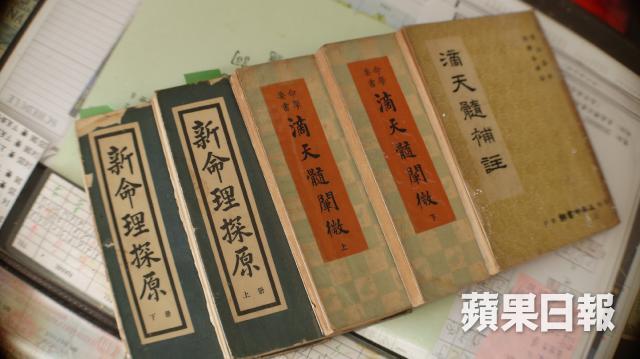 新命理探原
下冊
新命理探原
上冊
命學
要書
滴天髓闡微
上
命學
要書
滴天髓闡微
下
滴天髓補註
蘋果日報